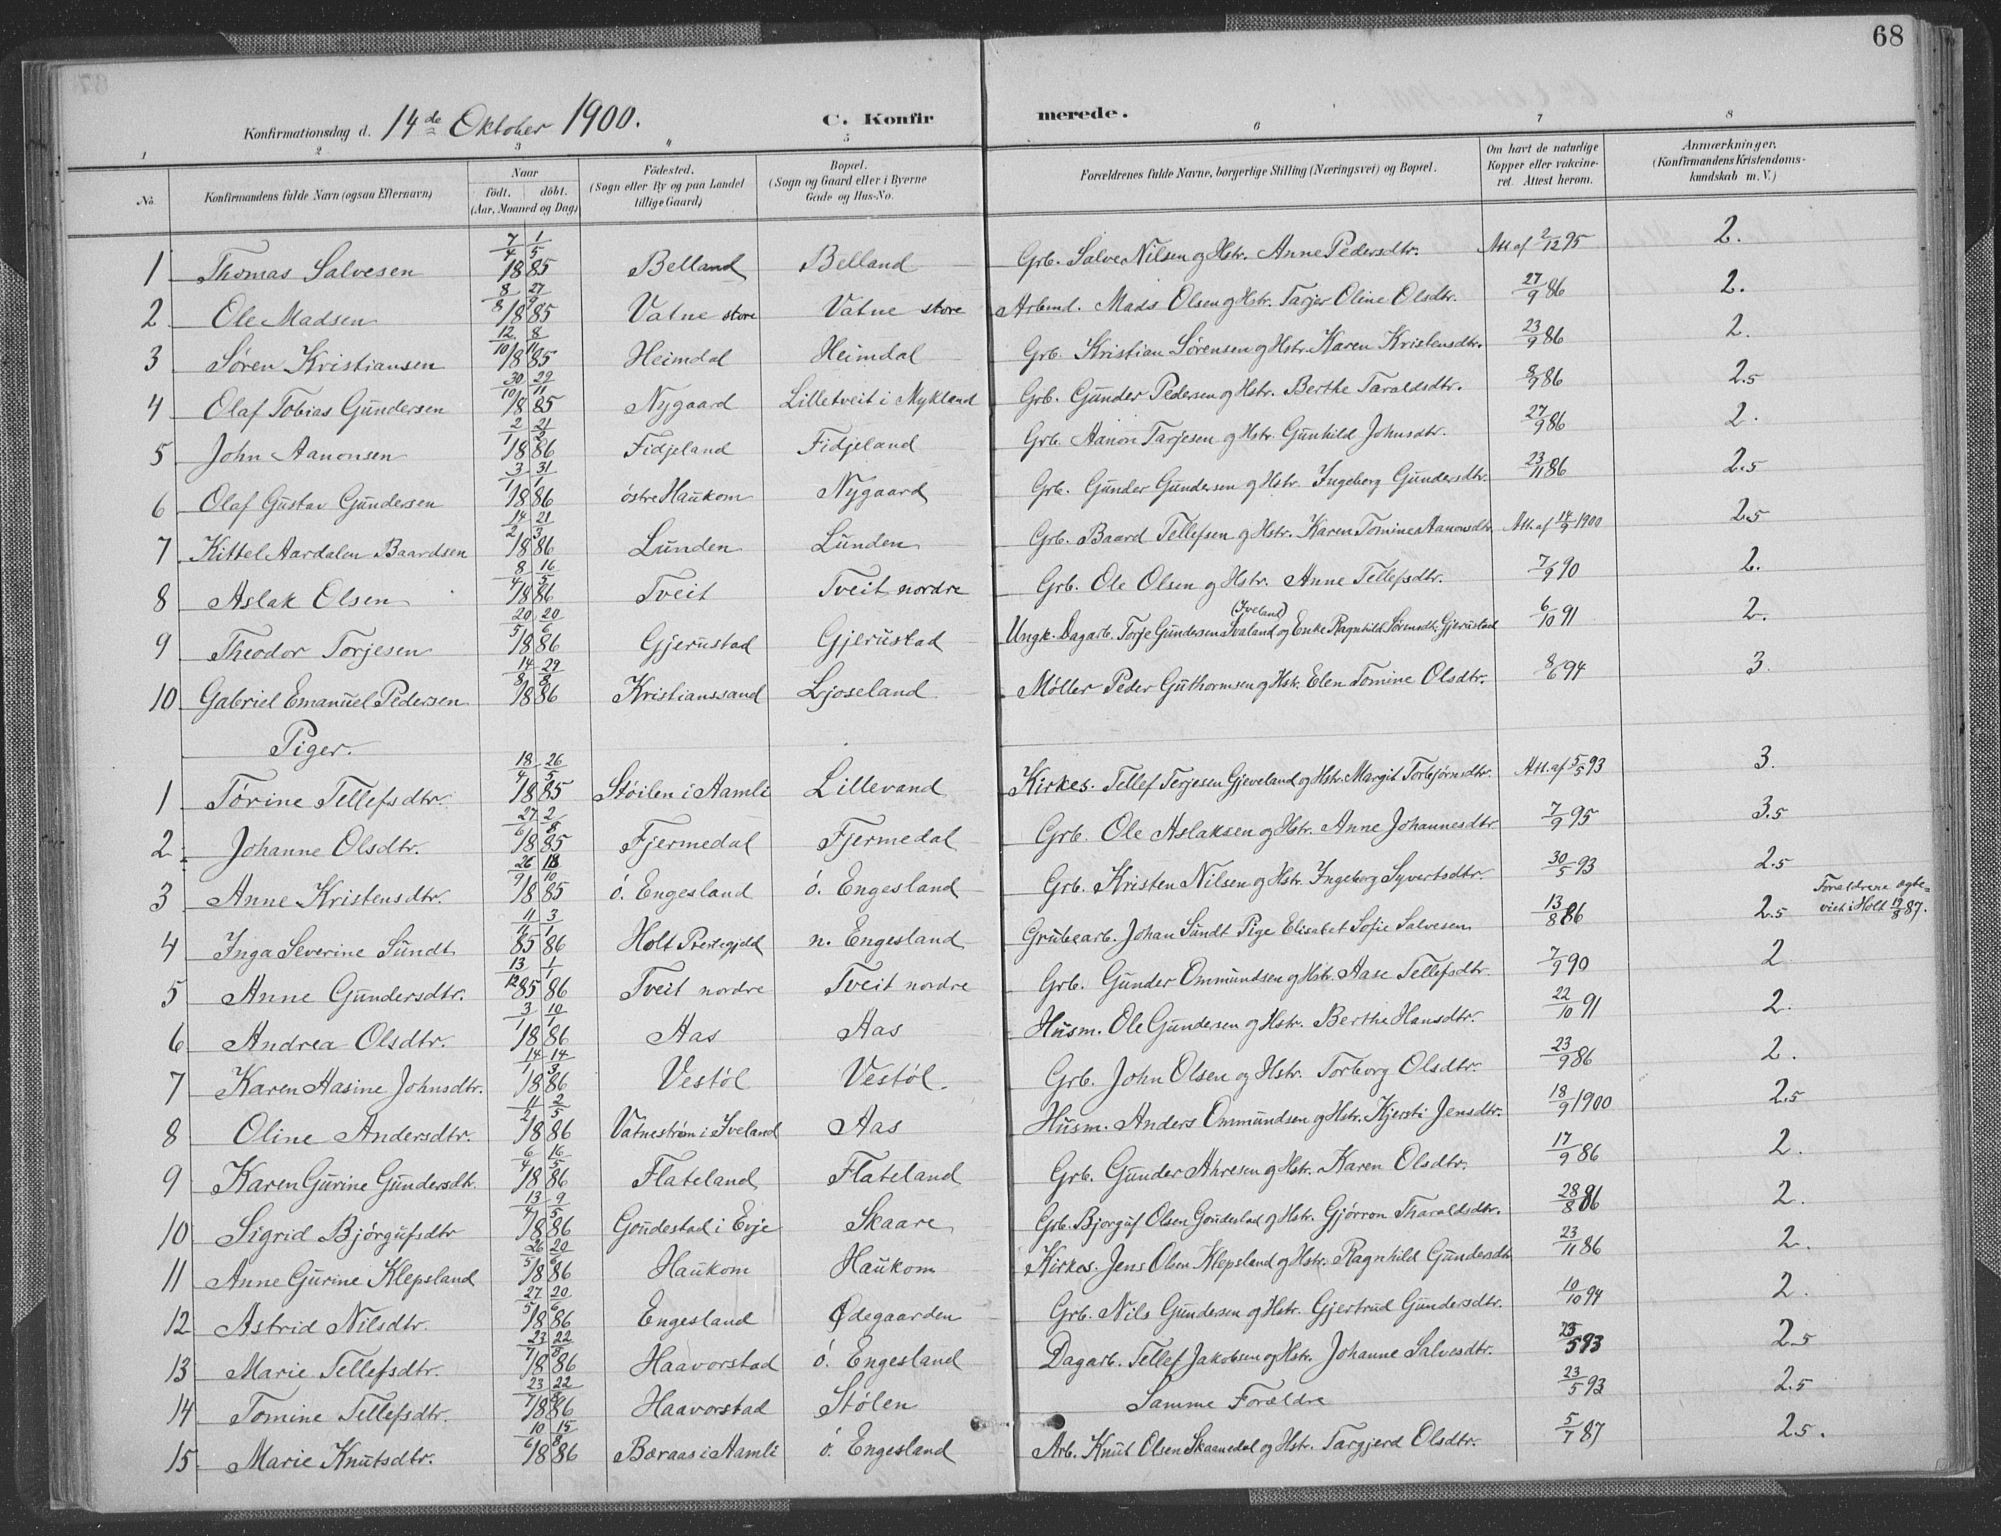 68
Konfirmationsdag d. 14de Oktober 1900. C. Konfirmerede.
1 2 3 4 5 6 7 8
No. Konfirmandens fulde Navn (ogsaa Efternavn) Naar født. døbt. (Aar, Maaned og Dag) Fødested. (Sogn eller By og paa Landet tillige Gaard) Bopæl. (Sogn og Gaard eller i Byerne Gade og Hus-No. Forældrenes fulde Navne, borgerlige Stilling (Næringsvei) og Bopæl. Om havt de naturlige Kopper eller vakcineret. Attest herom. Anmærkninger. (Konfirmandens Kristendomskundskab m. V.)
1 Thomas Salvesen 7/4 1/5 1885 Belland Belland Grb. Salve Nilsen og Hstr. Anne Pedersdtr. Att. af 2/12 95 2.
2 Ole Madsen 8/8 27/9 1885 Vatne store Vatne store Arbmd. Mads Olsen og Hstr. Tarjer Oline Olsdtr. 27/9 86 2.
3 Søren Kristiansen 12/10 8/11 1885 Heimdal Heimdal Grb. Kristian Sørensen og Hstr. Karen Kristensdtr. 23/9 86 2.
4 Olaf Tobias Gundersen 30/10 29/11 1885 Nygaard Lilletveit i Mykland Grb. Gunder Pedersen og Hstr. Berthe Taraldsdtr. 8/9 86 2.5
5 John Aanonsen 2/1 21/2 1886 Fidjeland Fidjeland Grb. Aanon Tarjesen og Hstr. Gunhild Johnsdtr. 27/9 86 2.
6 Olaf Gustav Gundersen 3/1 31/1 1886 østre Haukom Nygaard Grb. Gunder Gundersen og Hstr. Ingeborg Gundersdtr. 23/11 86 2.5
7 Kittel Aardalen Baardsen 14/2 21/3 1886 Lunden Lunden Grb. Baard Tellefsen og Hstr. Karen Tomine Aanonsdtr. Att. af 14/9 1900 2.5
8 Aslak Olsen 8/4 16/5 1886 Tveit Tveit nordre Grb. Ole Olsen og Hstr. Anne Tellefsdtr. 7/9 90 2.
9 Theodor Torjesen 20/5 20/6 1886 Gjerustad Gjerustad Ungk. Dagarb. Torje Gundersen Svaland (Iveland) og Enke Ragnhild Sørensdtr. Gjerustad 6/10 91 2.
10 Gabriel Emanuel Pedersen 14/8 29/8 1886 Kristianssand Ljoseland Møller Peder Guthormsen og Hstr. Elen Tomine Olsdtr. 8/6 94 3.
Piger.
1 Torine Tellefsdtr. 18/4 26/5 1885 Støilen i Aamli Lillevand Kirkes. Tellef Terjesen Gjeveland og Hstr. Margit Torbjørnsdtr. Att. af 5/5 93 3.
2 Johanne Olsdtr. 27/6 2/8 1885 Fjermedal Fjermedal Grb. Ole Aslaksen og Hstr. Anne Johannesdtr 7/9 95 3.5
3 Anne Kristensdtr. 26/9 18/10 1885 ø. Engesland ø. Engesland Grb. Kristen Nilsen og Hstr. Ingeborg Syvertsdtr. 30/5 93 2.5
4 Inga Severine Sundt 11/11 85 3/1 86 Holt Præstegjeld n. Engesland Grubearb. Johan Sundt Pige Elisabet Sofie Salvesen 13/8 86 2.5 Forældrene egteviet i Holt 19/8 87.
5 Anne Gundersdtr. 13/12 85 1/1 86 Tveit nordre Tveit nordre Grb. Gunder Ommundsen og Hstr. Aase Tellefsdtr. 7/9 90 2
6 Andrea Olsdtr. 3/1 10/1 1886 Aas Aas Husm. Ole Gundersen og Hstr. Berthe Hansdtr. 22/10 91 2.
7 Karen Aasine Johnsdtr. 14/1 14/3 1886 Vestøl Vestøl Grb. John Olsen og Hstr. Torborg Olsdtr. 23/9 86 2.
8 Oline Andersdtr. 11/2 2/5 1886 Vatnestrøm i Iveland Aas Husm. Anders Ommundsen og Hstr. Kjersti Jensdtr. 18/9 1900 2.5
9 Karen Gurine Gundersdtr. 6/4 16/5 1886 Flateland Flateland Grb. Gunder Ahresen og Hstr. Karen Olsdtr. 17/9 86 2.
10 Sigrid Bjørgufsdtr 13/4 9/5 1886 Goudestad i Evje Skaare Grb. Bjørguf Olsen Goudestad og Hstr. Gjørron Tharaldsdtr. 28/8 86 2.
11 Anne Gurine Klepsland 26/5 20/6 1886 Haukom Haukom Kirkes. Jens Olsen Klepsland og Hstr. Ragnhild Gundersdtr 23/11 86 2.
12 Astrid Nilsdtr. 27/5 20/6 1886 Engesland Ødegaarden Grb. Nils Gundersen og Hstr. Gjertrud Gundersdtr. 10/10 94 2.
13 Marie Tellefsdtr. 23/7 22/8 1886 Haavorstad ø. Engesland Dagarb. Tellef Jakobsen og Hstr. Johanne Salvesdtr. 23/5 93 2.5
14 Tomine Tellefsdtr. 23/7 22/8 1886 Haavorstad Stølen Samme Forældre 23/5 93 2.5
15 Marie Knutsdtr. 10/6 15/8 1886 Baraas i Aamli ø. Engesland Arb. Knut Olsen Skaanedal og Hstr. Targjerd Olsdtr. 5/7 87 2.5.